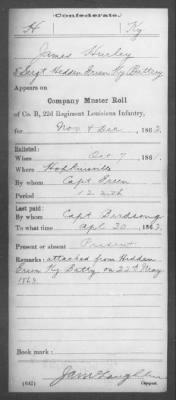 Confederate.
H Ky
James Hurley
5 Sergt Hedden Green Ky Battery
Appears on
Company Muster Roll
of Co. B, 22d Regiment Louisiana Infantry,
for Nov & Dec, 1862.
Enlisted:
When Oct 7, 1861.
Where Hopkinsville
By whom Capt Green
Period 12 mth
Last paid:
By whom Capt Birdsong
To what time Apl 30, 1862.
Present or absent Present
Remarks: attached from Hedden
Green Ky Batty on 22d May
1863.
Book mark:
(642) Copyist.